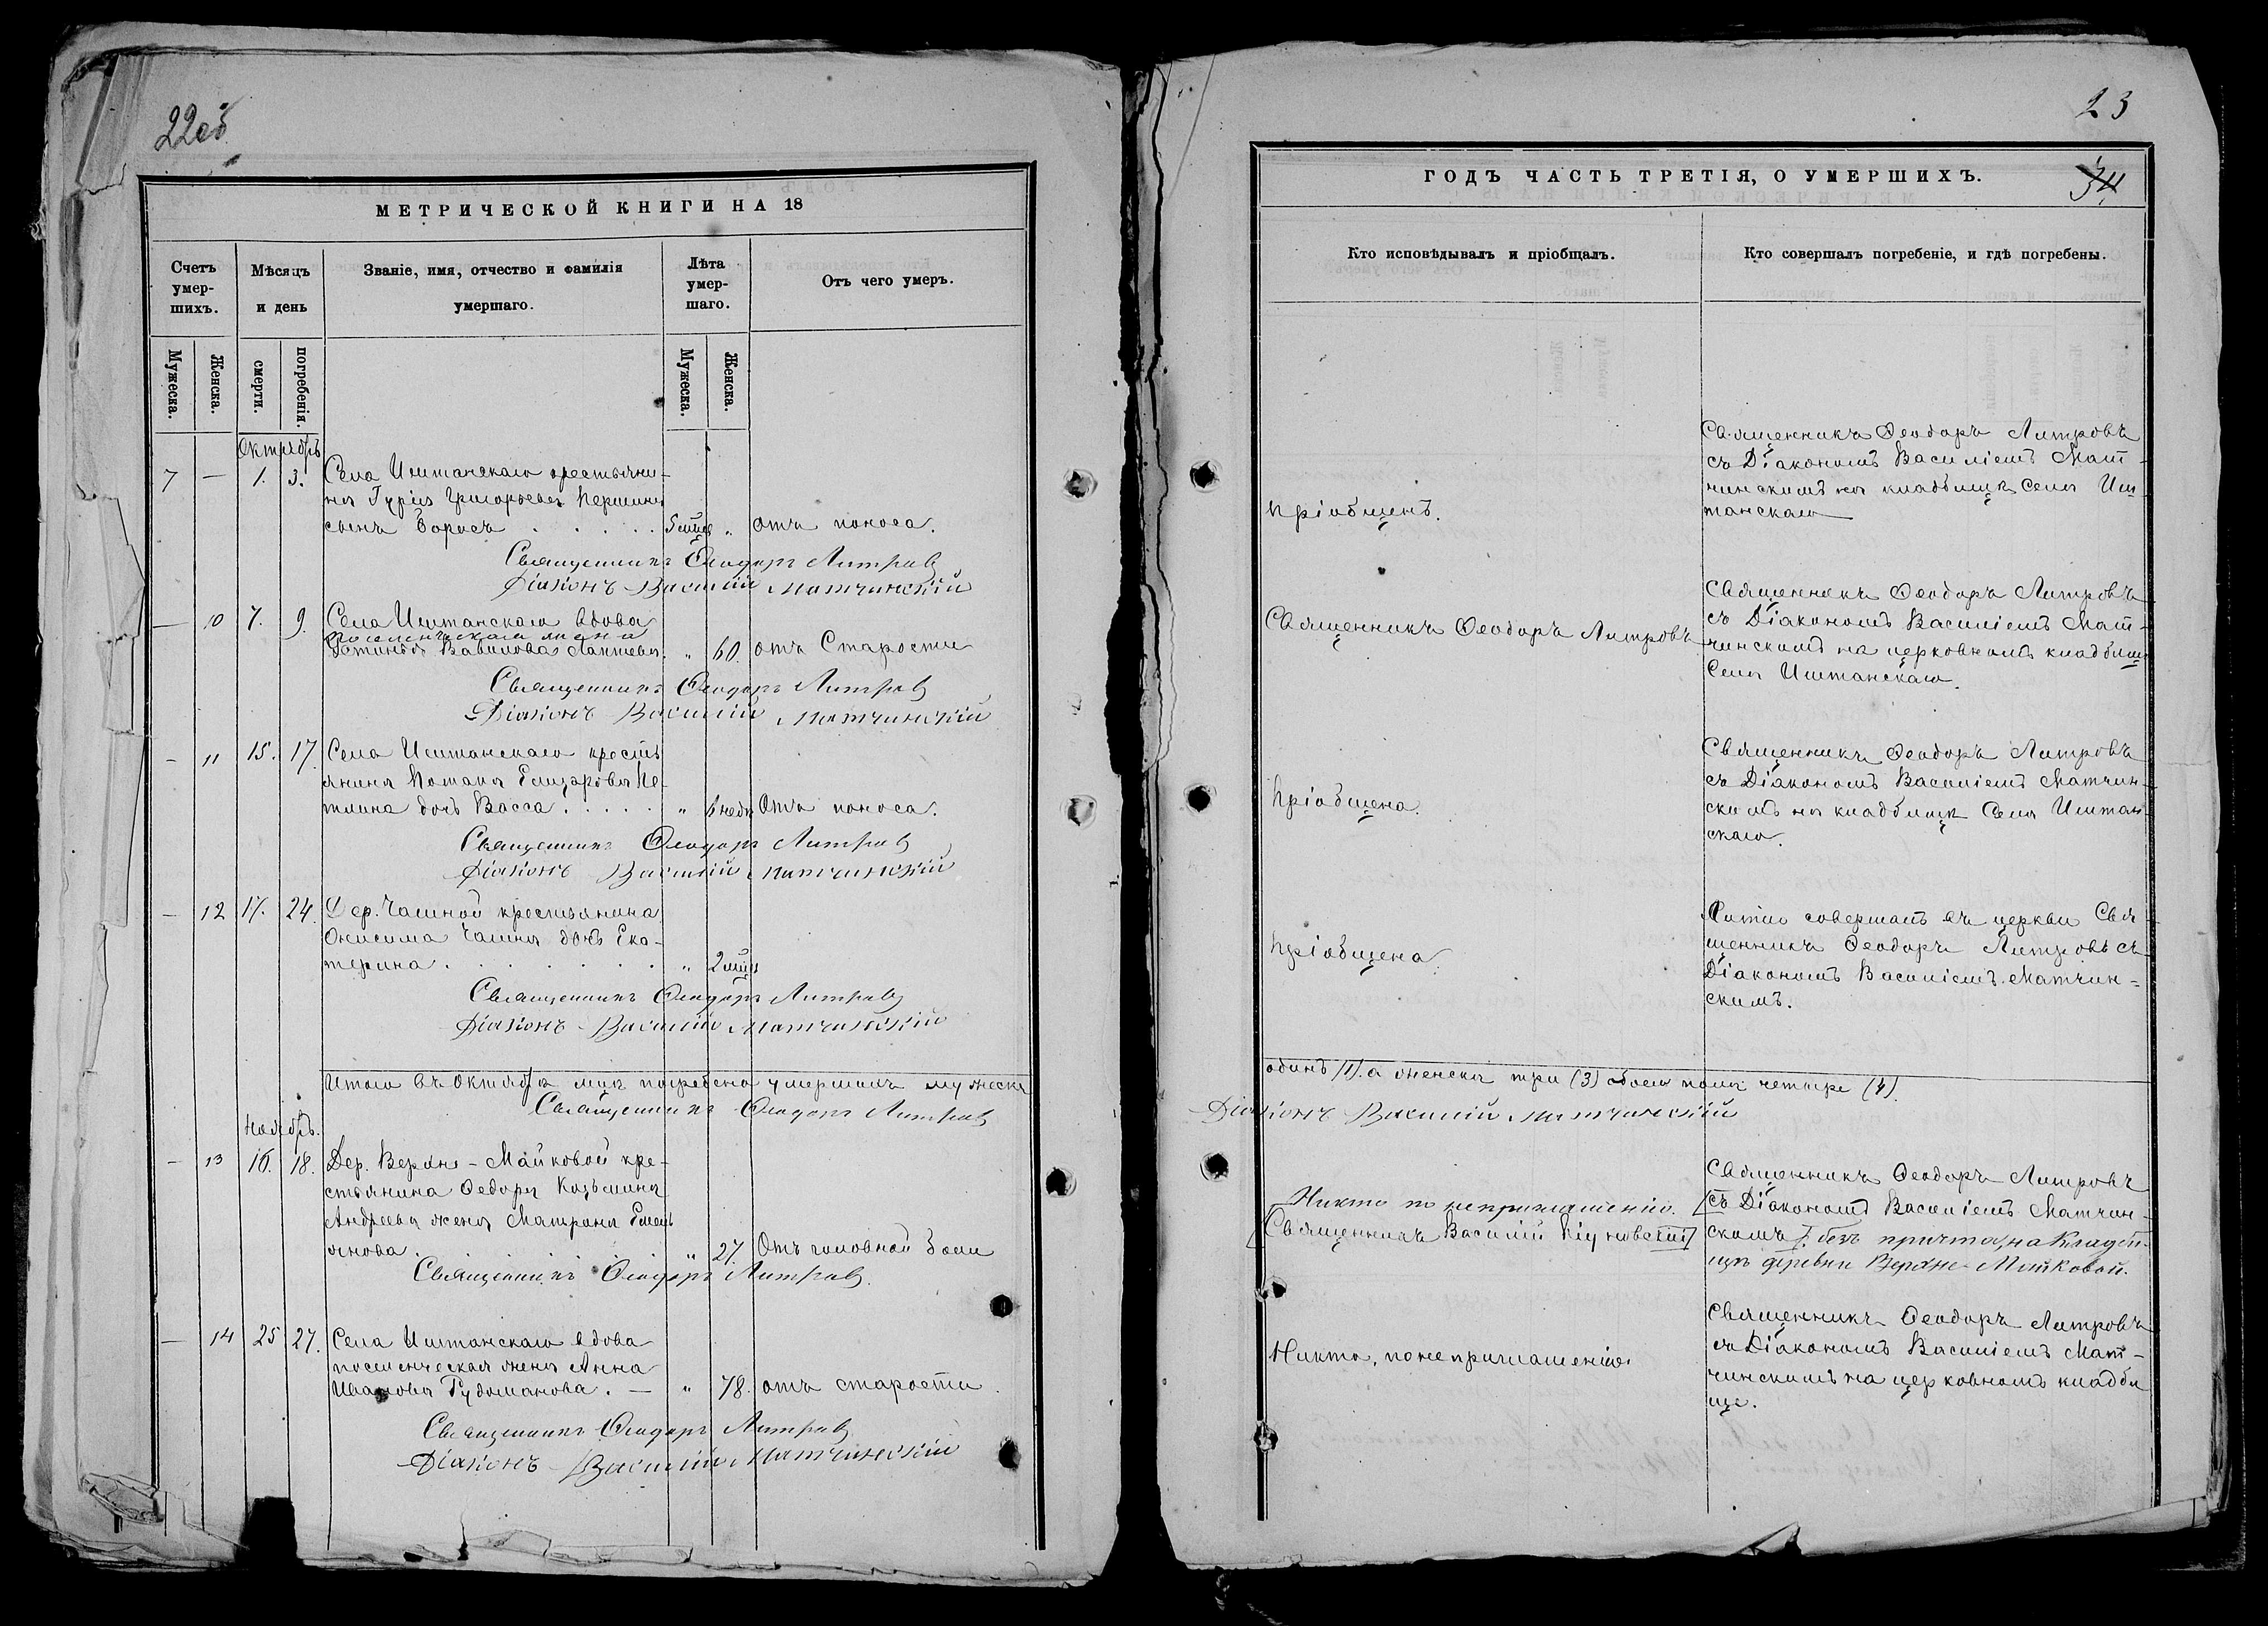 22об
МЕТРИЧЕСКОЙ КНИГИ НА 18
Счетъ умер-шихъ.
Мѣсяцъ и день
Званіе, имя, отчество и фамилія умершаго.
Лѣта умер-шаго.
Отъ чего умеръ.
Мужеска.
Женска.
смерти.
погребенія.
Мужеска.
Женска.
Октябрь
7 — 1. 3. Села Иштанскаго крестьяни-
на Гурія Григорьева Першина
сынъ Борисъ . . . . . 5 мцв „ отъ поноса.
Священникъ Ѳеодоръ Литровъ
Діаконъ Василій Матчинскій
— 10 7. 9. Села Иштанскаго вдова
поселенческая жена
Устинья Вавилова Лаптева. „ 60. отъ Старости
Священникъ Ѳеодоръ Литровъ
Діаконъ Василій Матчинскій
— 11 15. 17. Села Иштанскаго кресть
янина Потапа Елизарова Пе-
тлина дочь Васса . . . . . „ 6 недѣ Отъ поноса.
Священникъ Ѳеодоръ Литровъ
Діаконъ Василій Матчинскій
— 12 17. 24. Дер. Чалиной крестьянина
Онисима Чалина дочь Ека-
терина . . . . . . . „ 2 мцв
Священникъ Ѳеодоръ Литровъ
Діаконъ Василій Матчинскій
Итого въ Октябрѣ мцѣ погребено умершихъ мужеска
Священникъ Ѳеодоръ Литровъ
Ноябрь.
— 13 16. 18. Дер. Верхне-Майковой кре-
стьянина Ѳедора Козьмина
Андреева жена Матрона Емель
янова . „ 27. Отъ головной боли
Священникъ Ѳеодоръ Литровъ.
— 14 25 27. Села Иштанскаго вдова
поселенческая жена Анна
Иванова Рудоманова. — „ 78. отъ старости.
Священникъ Ѳеодоръ Литровъ
Діаконъ Василій Матчинскій
23
34
ГОДЪ ЧАСТЬ ТРЕТІЯ, О УМЕРШИХЪ.
Кто исповѣдывалъ и пріобщалъ.
Кто совершалъ погребеніе, и гдѣ погребены.
Пріобщенъ.
Священникъ Ѳеодоръ Литровъ
съ Діакономъ Василіемъ Мат-
чинскимъ на кладбищѣ села Иш-
танскаго
Священникъ Ѳеодоръ Литровъ
Священникъ Ѳеодоръ Литровъ
съ Діакономъ Василіемъ Мат-
чинскимъ на церковномъ кладбищ
Села Иштанскаго.
Пріобщена.
Священникъ Ѳеодоръ Литровъ
съ Діакономъ Василіемъ Матчин-
скимъ на кладбищѣ Села Иштан
скаго.
Пріобщена
совершалъ въ церкви Свя-
щенникъ Ѳеодоръ Литровъ съ
Діакономъ Василіемъ Матчин-
скимъ.
одинъ (1). а женска три (3) обоего пола четыре (4).
Діаконъ Василій Матчинскій
Никто по неприглашенію.
[Священникъ Василій]
Священникъ Ѳеодоръ Литровъ
[съ Діакономъ Василіемъ Матчин-
скимъ]. безъ причта, на Кладби-
щѣ деревни Верхне-Майковой.
Никто, по неприглашенію.
Священникъ Ѳеодоръ Литровъ
съ Діакономъ Василіемъ Мат-
чинскимъ на церковномъ кладби
ще.